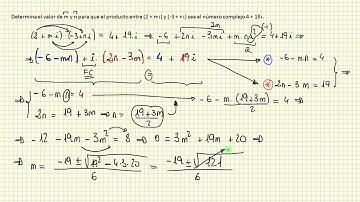 Determine el valor de m y n para que el producto entre (2 + m i) y (-3 + n i) sea el número complejo 4 + 19 i.
(2 + m i) · (-3 + n i) = 4 + 19 i ⇒ -6 + 2n i - 3m i + m · n · i² = 4 + 19 i
3m
(-1)
⇒ (-6 - mn) + i · (2n - 3m) = 4 + 19 i ⇒
-6 - mn = 4
2n - 3m = 19 ⇒
⇒ { -6 - m n = 4
2n = 19 + 3m ⇒ n = (19 + 3m)/2
-6 - m · (19 + 3m)/2 = 4 ⇒
⇒ -12 - 19m - 3m² = 8 ⇒ 0 = 3m² + 19m + 20 ⇒
⇒ m = (-19 ± √(19² - 4·3·20))/6 = (-19 ± √121)/6